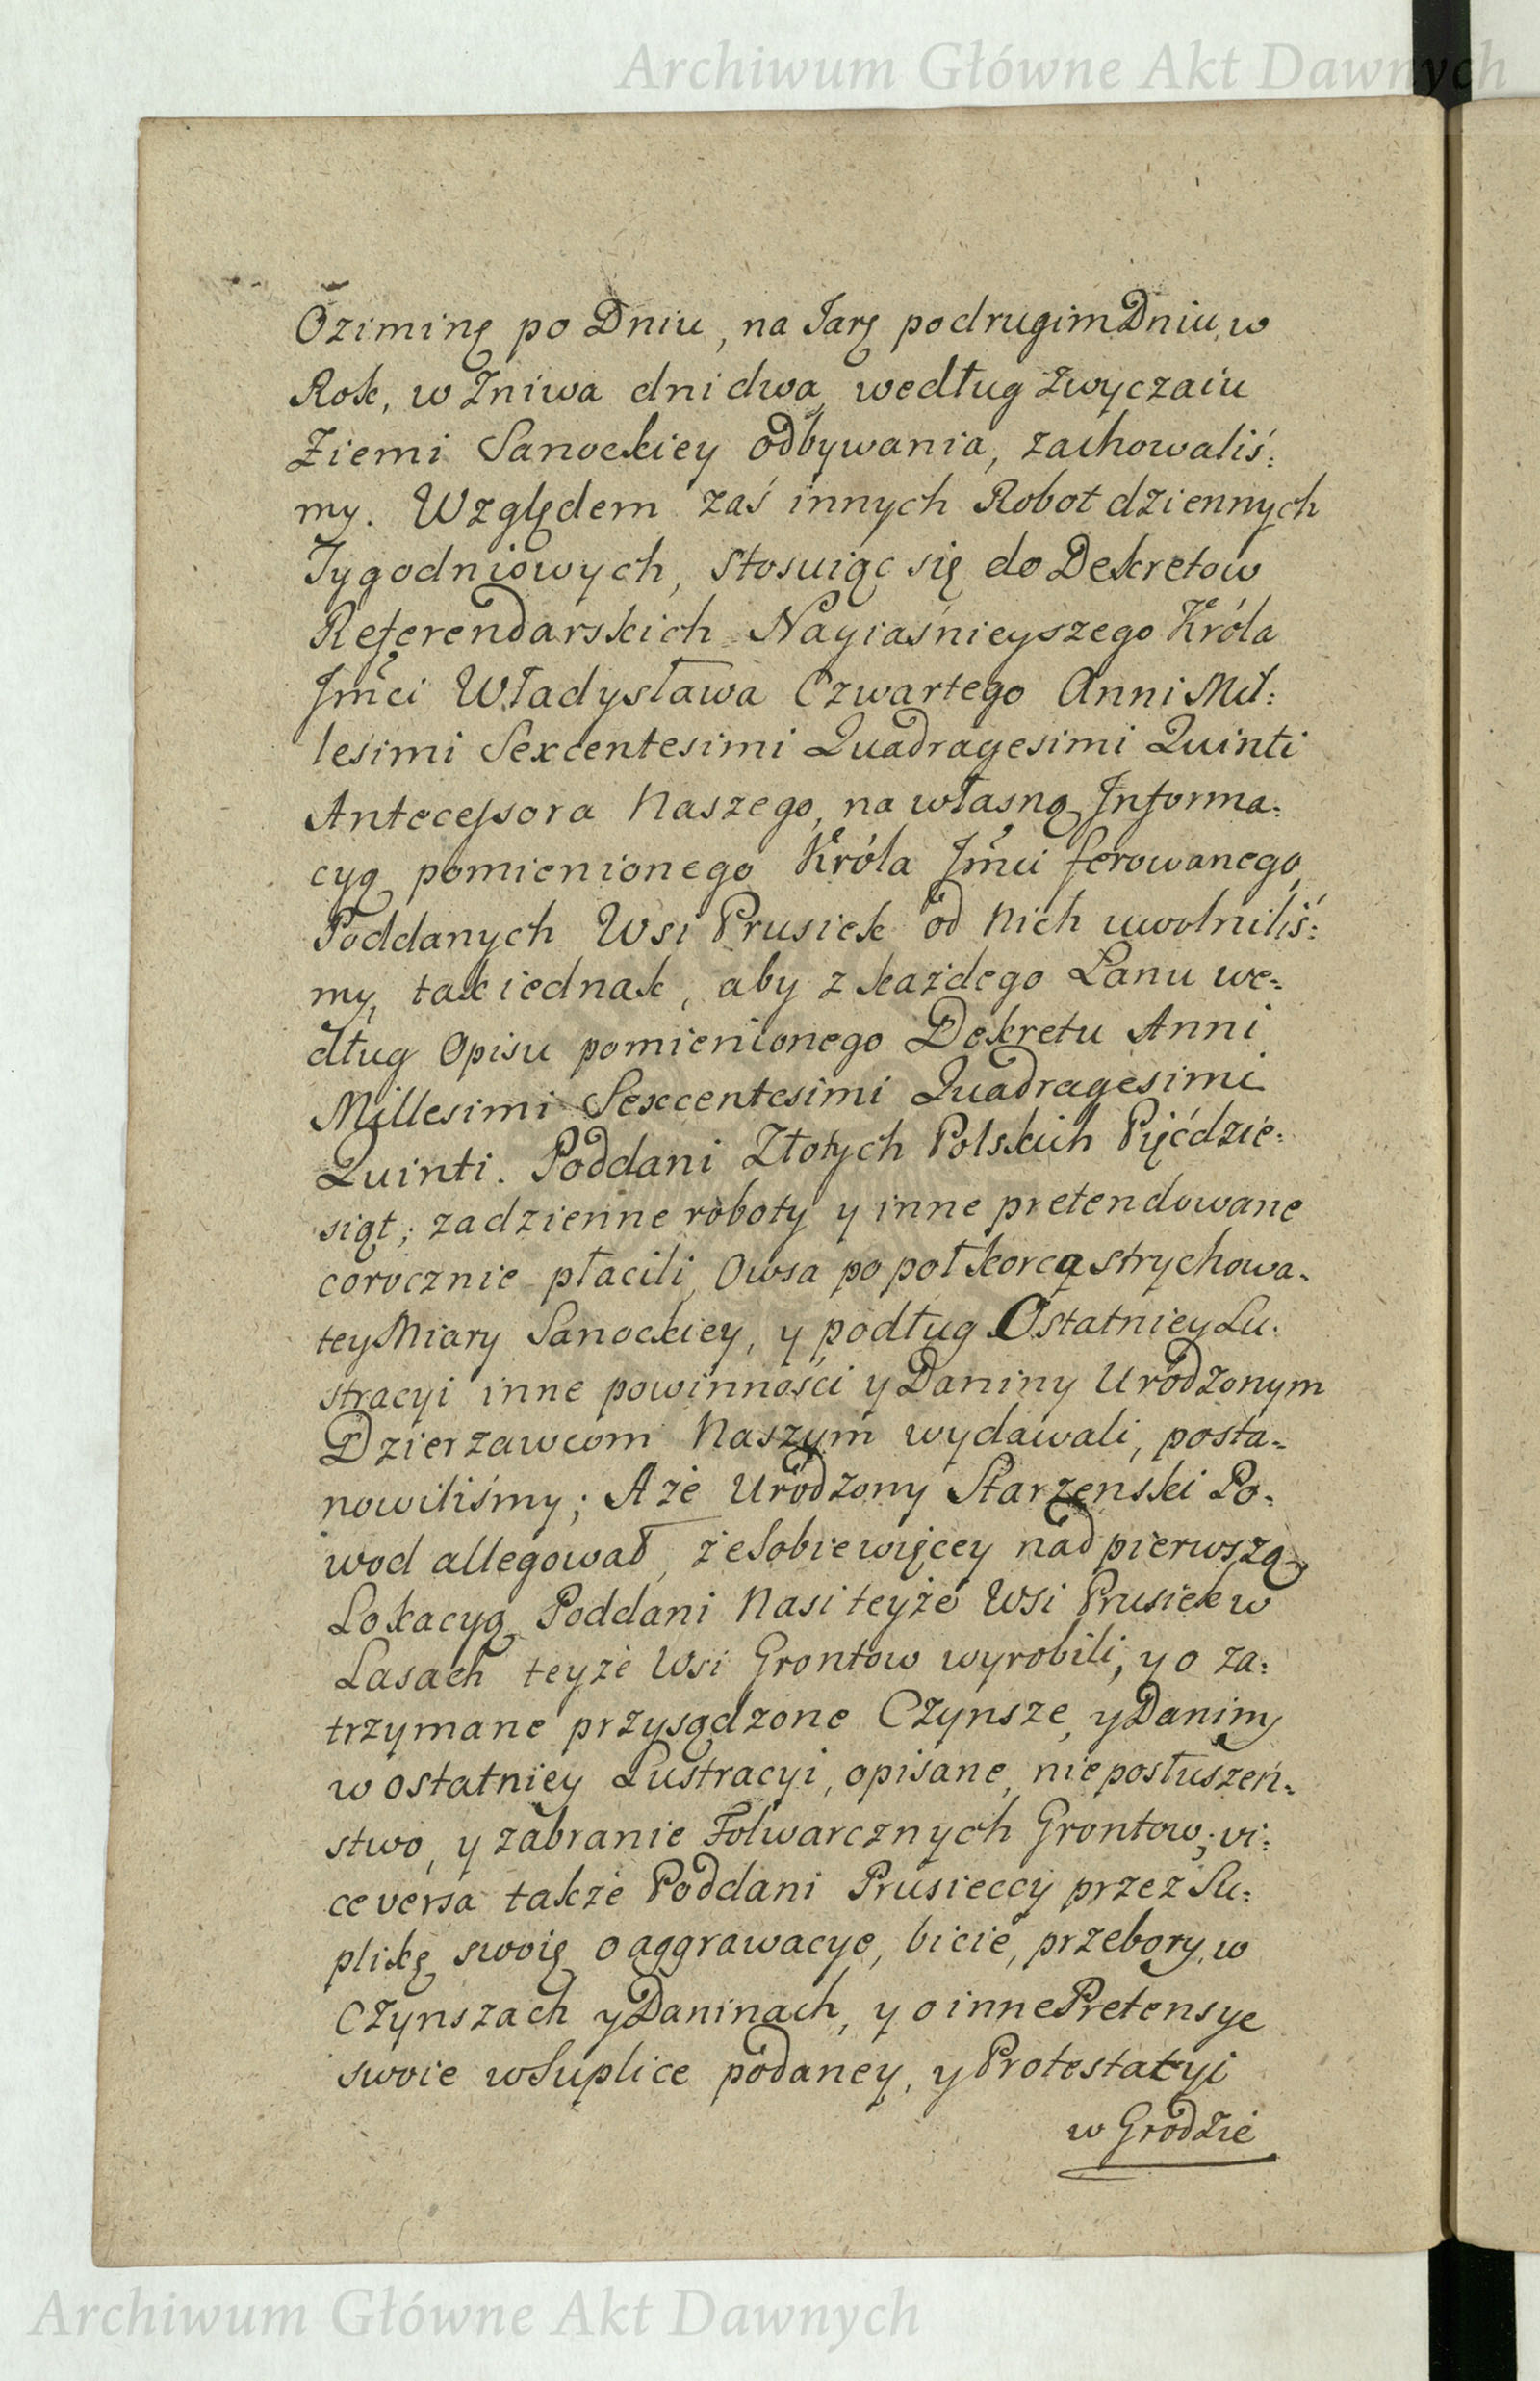 Archiwum Główne Akt Dawnych
Oziminę po Dniu, na Jarę po drugim Dniu, w
Rok, w Zniwa dni dwa, według zwyczaiu
Ziemi Sanockiey odbywania, zachowaliś:
my. Względem zaś innych Robot dziennych
Tygodniowych, stosuiąc się do Dekretow
Referendarskich Nayiaśnieyszego Króla
Jmći Władysława Czwartego Anni Mil:
lesimi Sexcentesimi Quadragesimi Quinti
Antecessora Naszego, na własną Informa:
cyą pomienionego Króla Jmći ferowanego,
Poddanych Wsi Prusiek od nich uwolniliś:
my, tak iednak, aby z każdego Łanu we:
dług Opisu pomienionego Dekretu Anni
Millesimi Sexcentesimi Quadragesimi
Quinti. Poddani Złotych Polskich Pięćdzie:
siąt; za dzienne roboty y inne pretendowane
corocznie płacili, Owsa po poł korca strychowa-
tey Miary Sanockiey, y podług Ostatniey Lu:
stracyi inne powinności y Daniny Urodzonym
Dzierzawcom Naszym wydawali, posta-
nowiliśmy; A że Urodzony Starzenski Po-
wod allegował, że Sobie więcey nad pierwszą
Lokacyą Poddani Nasi teyże Wsi Prusiek w
Lasach teyże Wsi Grontow wyrobili, y o za:
trzymane przysądzone Czynsze, y Daniny
w ostatniey Lustracyi, opisane, nieposłuszeń-
stwo, y zabranie Folwarcznych Grontow; vi:
ce versa także Poddani Prusieccy przez Su:
plikę swoię o aggrawacye, bicie, przebory, w
Czynszach y Daninach, y o inne Pretensye
swoie w Suplice podaney, y Protestacyi
w Grodzie
Archiwum Główne Akt Dawnych